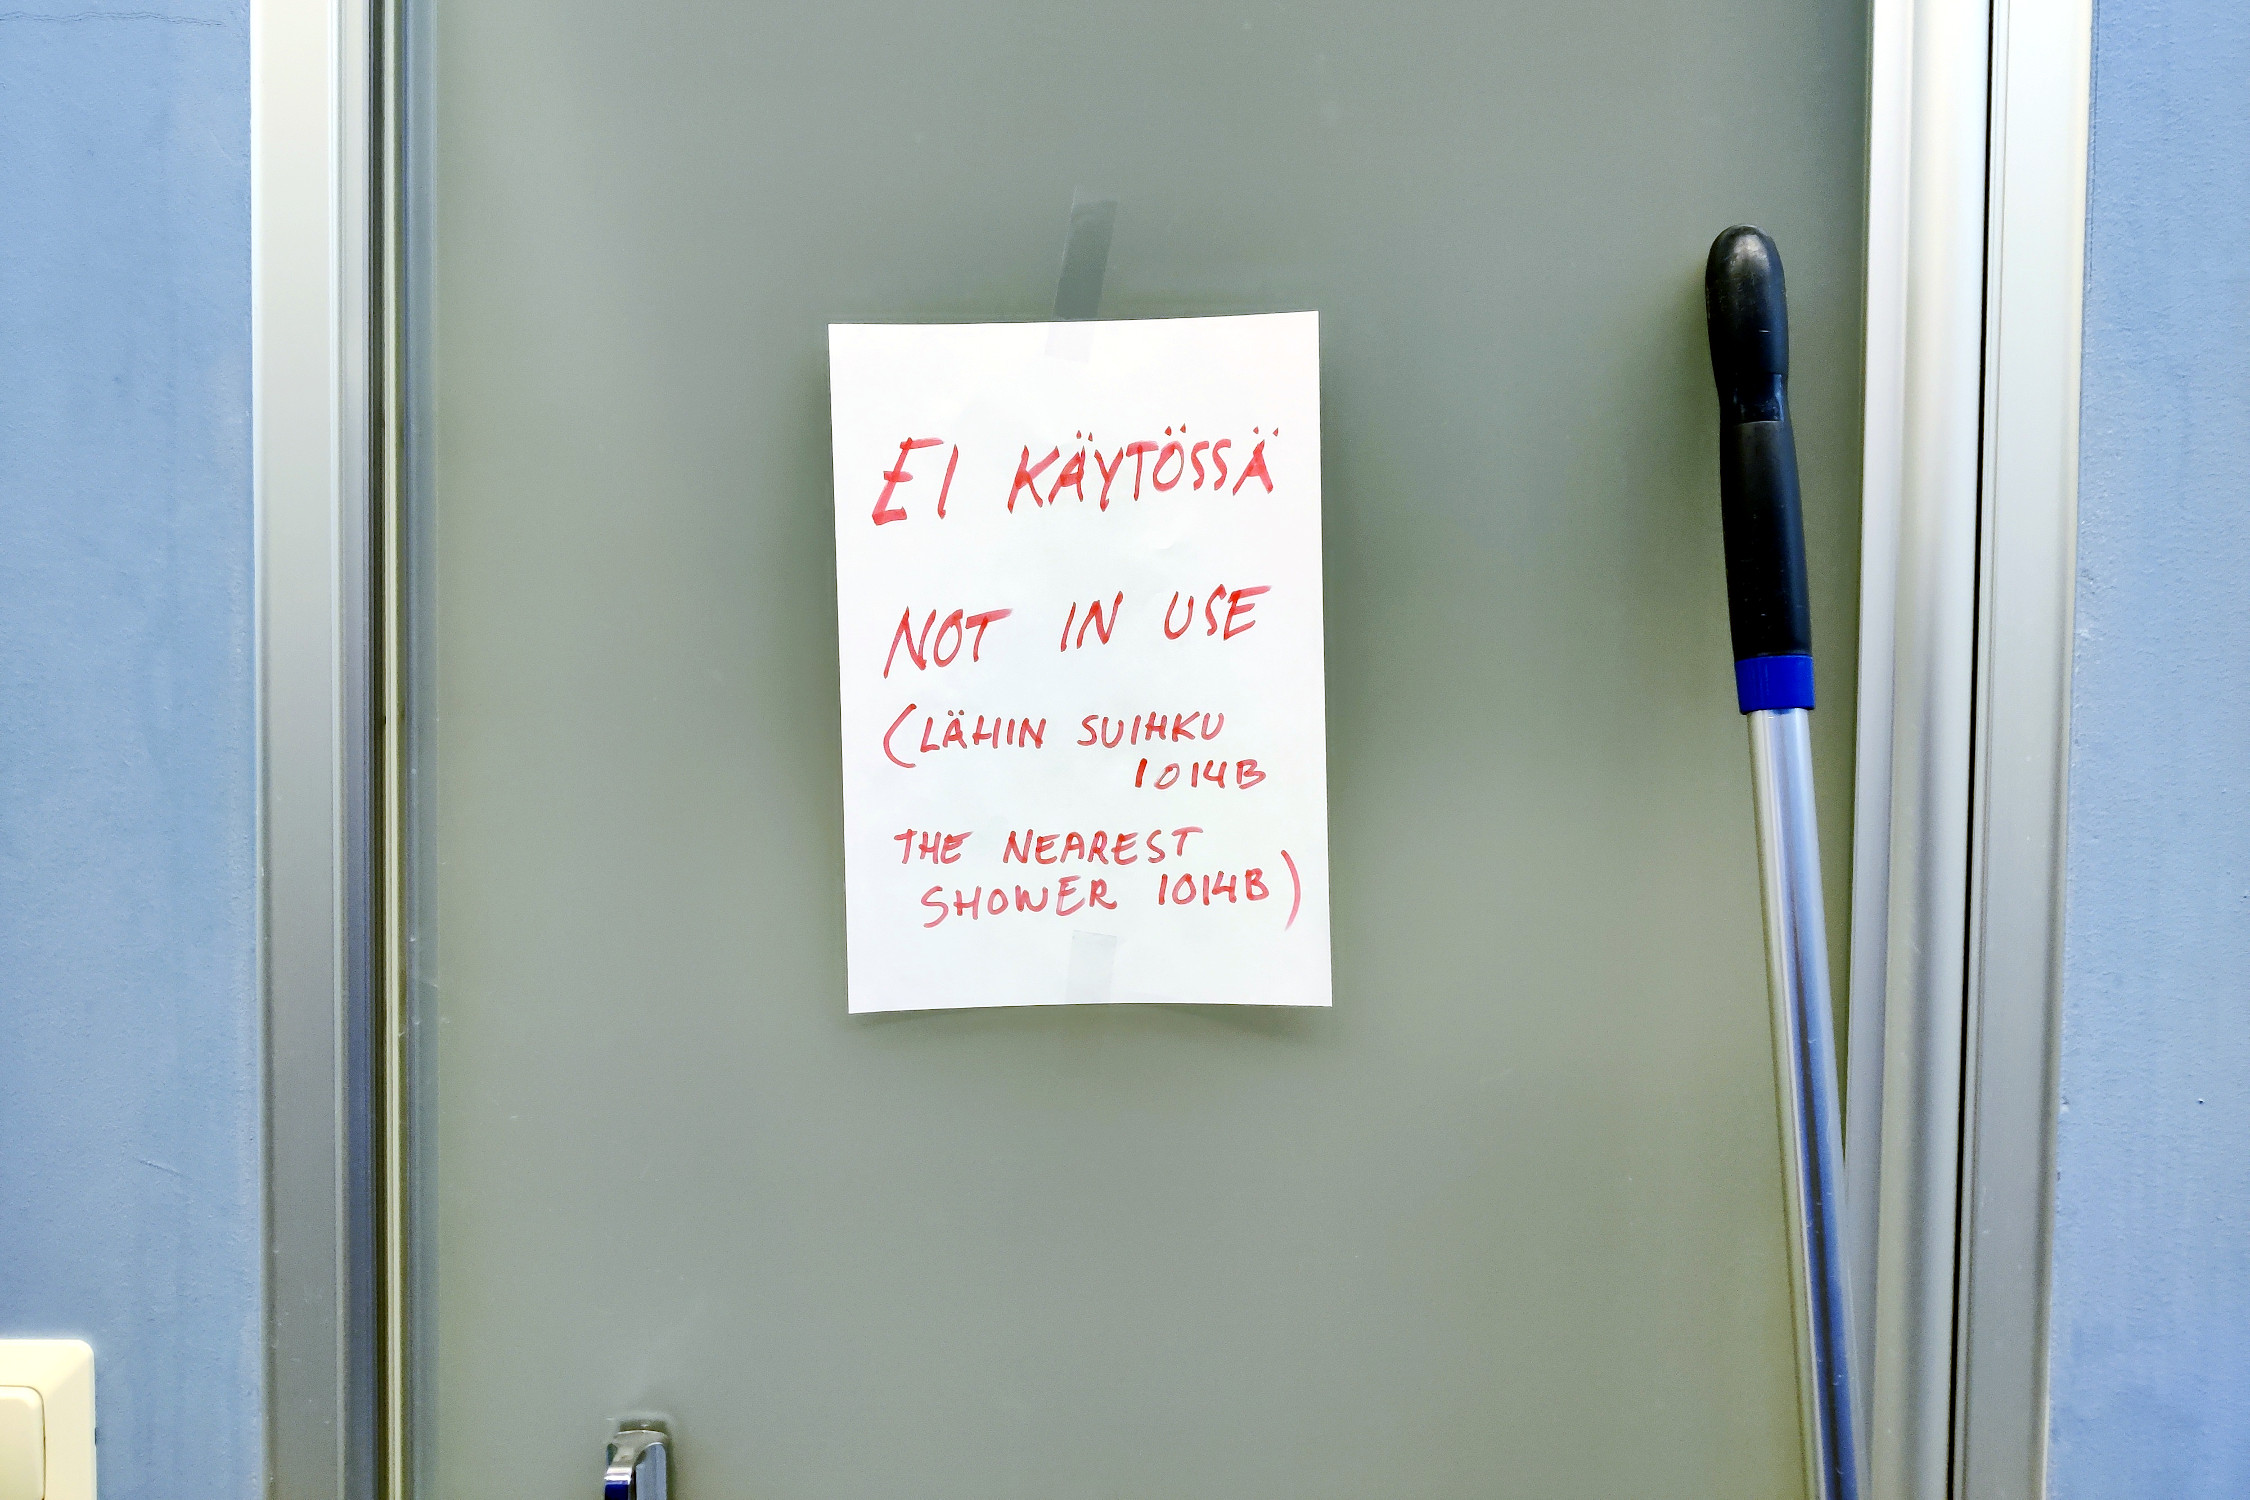 EI KÄYTÖSSÄ
NOT IN USE
(LÄHIN SUIHKU
1014B
THE NEAREST
SHOWER 1014B)